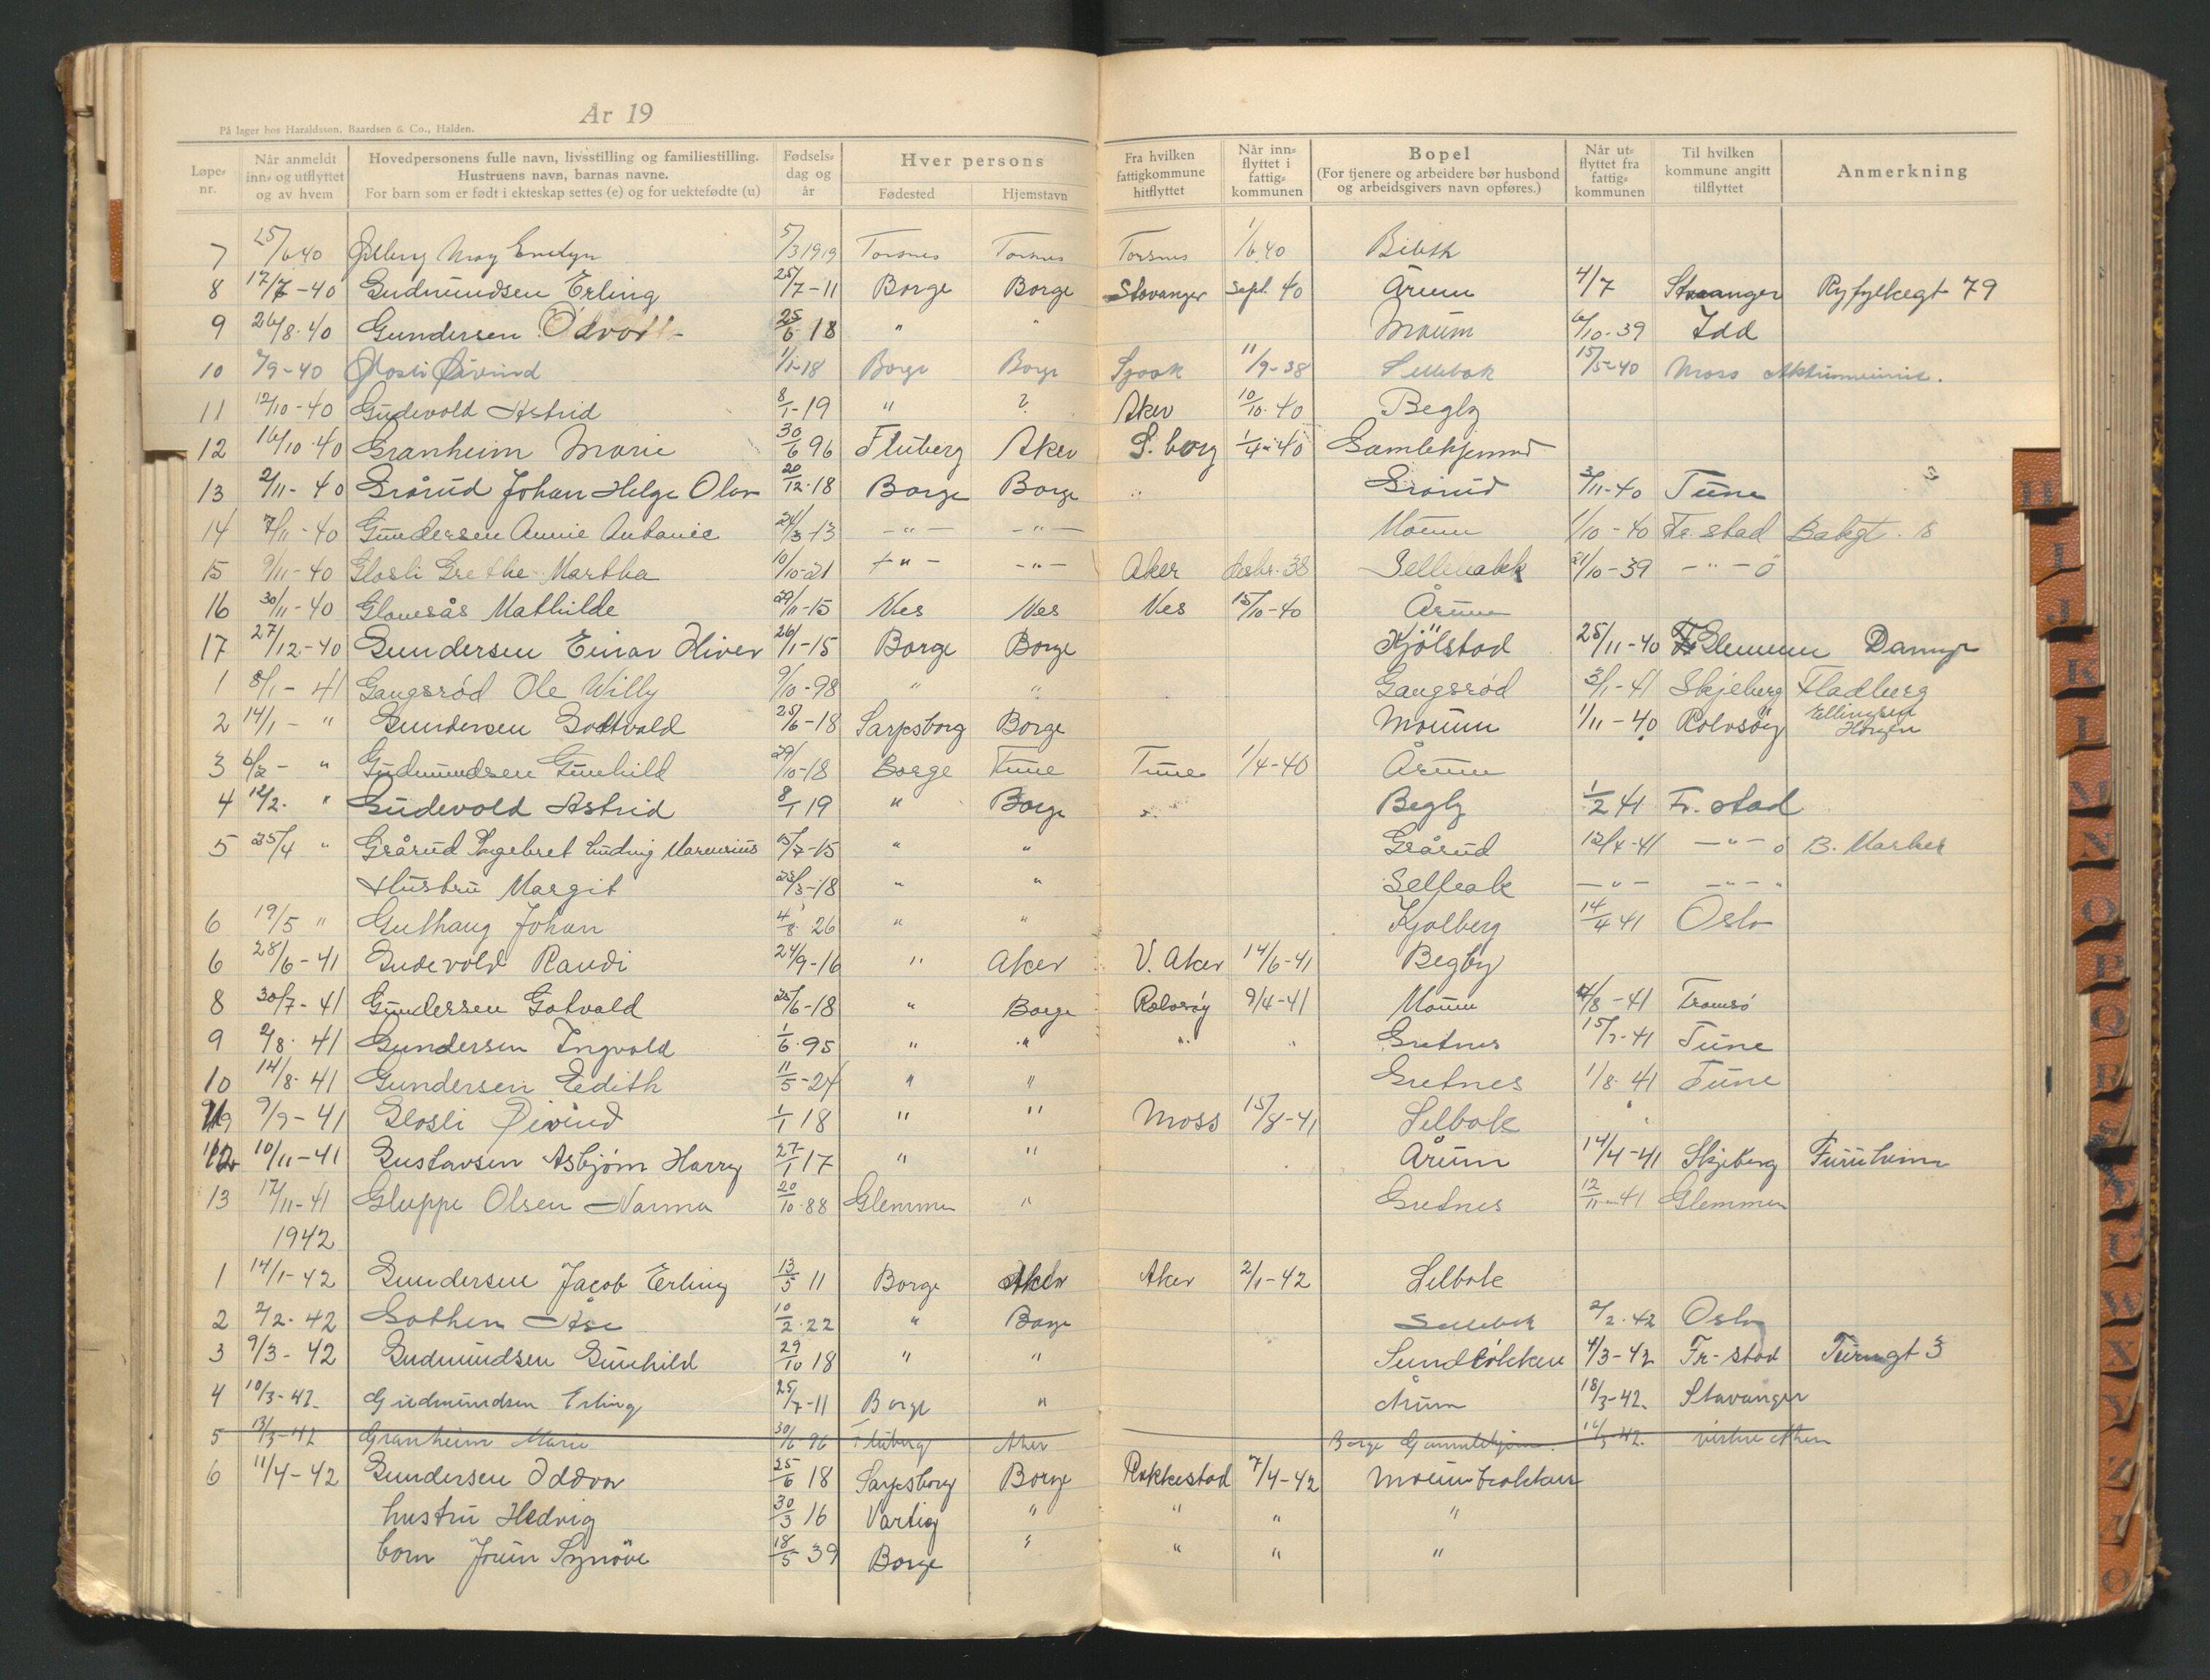 År 19
På lager hos Haraldsson, Baardsen & Co., Halden.
Løpe-nr. | Når anmeldt inn- og utflyttet og av hvem | Hovedpersonens fulle navn, livsstilling og familiestilling. Hustruens navn, barnas navne. For barn som er født i ekteskap settes (e) og for uektefødte (u) | Fødsels-dag og år | Hver persons Fødested | Hjemstavn | Fra hvilken fattigkommune hitflyttet | Når inn-flyttet i fattig-kommunen | Bopel (For tjenere og arbeidere bør husbond og arbeidsgivers navn opføres.) | Når ut-flyttet fra fattig-kommunen | Til hvilken kommune angitt tilflyttet | Anmerkning
7 25/6 40 May Evelyn 5/3 1919 Torsnes Torsnes Torsnes 1/6 40
8 17/7-40 Gudmundsen Erling 25/7-11 Borge Borge Stavanger Sept. 40 Årum 4/7 Stavanger Ryfylkegt 79
9 26/8-40 Gundersen 25/6 18 " " Moum 6/10-39 Idd
10 7/9-40 Glosli Øivind 1/1-18 Borge Borge 11/9-38 Sellebak 15/5-40 Moss
11 12/10-40 Gudevold Astrid 8/1-19 " ? Aker 10/10-40 Begby
12 16/10-40 Granheim Marie 30/6 96 Fluberg Aker S.borg 1/4-40 Gamlehjemmet
13 2/11-40 Grårud Johan Helge Olav 20/12-18 Borge Borge " Grårud 3/11-40 Tune
14 7/11-40 Gundersen Annie Antonie 24/3-13 -"- -"- Moum 1/10-40 Fr.stad
15 9/11-40 Glosli Grethe Martha 10/10-21 -"- -"- Aker desbr. 38 Sellebakk 21/10-39 -"-
16 30/11-40 Glomsås Mathilde 29/11-15 Nes Nes Nes 15/10-40 Årum
17 27/12-40 Gundersen Einar Hiver 26/1-15 Borge Borge Kjölstad 25/11-40 Glemmen
1 8/1-41 Gangsrød Ole Willy 9/10-98 " " Gangsrød 3/1-41 Skjeberg Fladberg
2 14/1-" Gundersen Gottvald 25/6-18 Sarpsborg Borge Moum 1/11-40 Rolvsöy Ellingsen
3 6/2-" Gudmundsen Gunhild 29/10-18 Borge Tune Tune 1/4-40 Årum
4 12/2. " Gudevold Astrid 8/1 19 " Borge Begby 1/2 41 Fr.stad
5 25/4 " Grårud Ingebret Ludvig Marensius 15/7-15 " " Grårud 12/4-41 -"-
Hustru Margit 23/3-18 " " Selleak -"- -"-
6 19/5 " Gulhaug Johan 4/8 26 " " Kjølberg 14/4 41 Oslo
6 28/6-41 Gudevold Randi 24/9-16 " Aker V. Aker 14/6-41 Begby
8 30/7-41 Gundersen Gotvald 25/6-18 " Borge Rolvsøy 9/4-41 Moum 4/8-41 Tromsö
9 2/8. 41 Gundersen Ingvald 1/6.95 " " " " Gretnes 15/7-41 Tune
10 14/8.41 Gundersen Eedith 11/5-24 " " Gretnes 1/8.41 Tune
9/9-41 Glosli Øivind 1/1 18 " " Moss 15/8-41 Selbak
12 10/11-41 Gustavsen Asbjørn Harry 27/1 17 " " Årum 14/4-41 Skjeberg Furuheim
13 17/11-41 Gluppe Olsen Norma 20/10.88 Glemmen " Gretnes 12/11-41 Glemmen
1942
1 14/1-42 Gundersen Jacob Erling 13/5 11 Borge Aker Aker 2/1-42 Selbak
2 2/2.42 Gothen Åse 10/2.22 " Borge Sellebak 2/2.42 Oslo
3 9/3-42 Gudmundsen Gunhild 29/10 18 " " Sundløkken 4/3-42 Fr-stad Turngt 3
4 10/3-42. Gudmundsen Erling 25/7-11 Borge " Årum 18/3-42. Stavanger
5 13/3-42 Granheim Marie 30/6-96 Fluberg Aker Borge Gamlehjem. 12/3-42. Aker
6 11/4-42 Gundersen Oddvar 25/6 18 Sarpsborg Borge Rakkestad 7/4-42 Moumløkken
hustru Hedvig 30/3 16 Varteig " " " "
barn Jorun Synöve 18/5 39 Borge " " " "